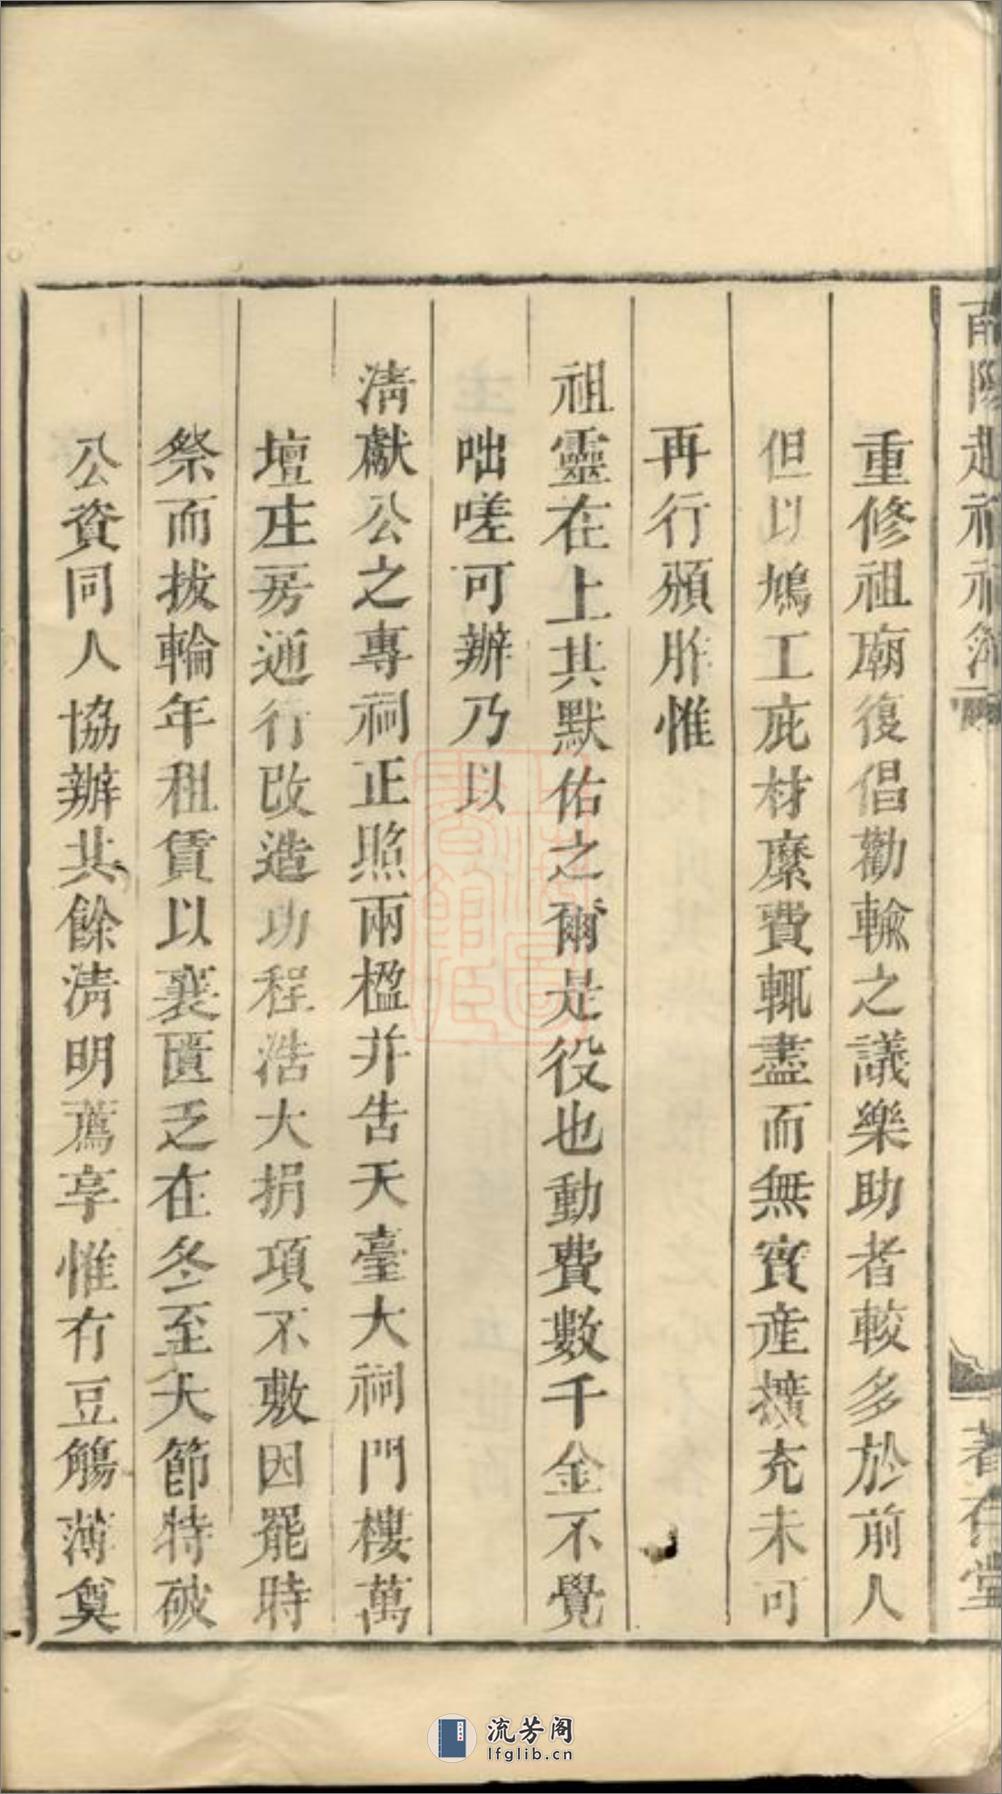 重修祖廟復倡勸輸之議樂助者較多於前人
但以鳩工庀材縻費輒盡而無實産擴充未可
再行頒胙惟
祖靈在上其默佑之爾是役也動費數千金不覺
咄嗟可辦乃以
淸獻公之專祠正照兩楹并告天臺大祠門樓萬
壇庄房通行改造功程浩大捐項不敷因罷時
祭而拔輪年租賃以襄匱乏在冬至大節特破
公資同人協辦其餘淸明薦享惟有豆觴薄奠
流芳阁
lfglib.cn